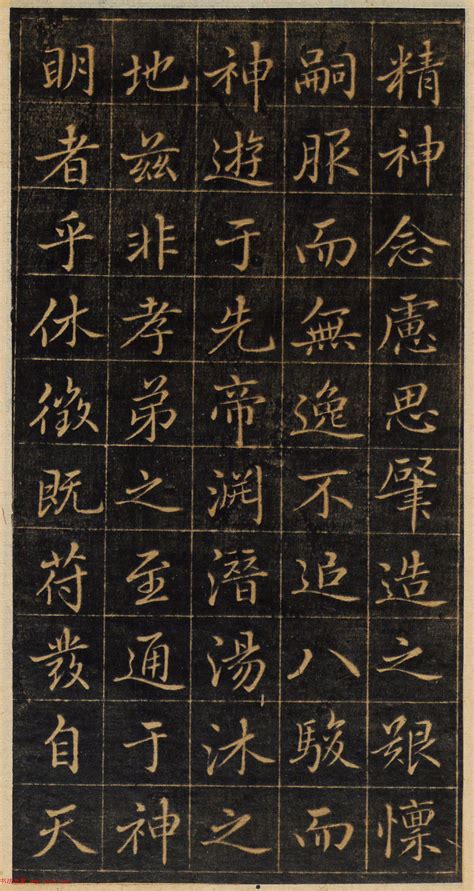 精神念慮思肇造之艱懍
嗣服而無逸不追八駿而
神遊于先帝淵潛湯沐之
地茲非孝弟之至通于神
明者乎休徵既苻發自天